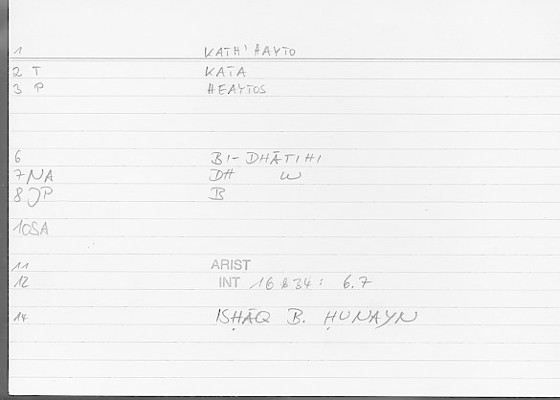 1 KATH' HAYTO
2 T KATA
3 P HEAYTOS
6 BI-DHĀTIHI
7 NA DH W
8 JP B
10SA
11 ARIST
12 INT 16 b 34: 6.7
14 ISḤĀQ B. ḤUNAYN